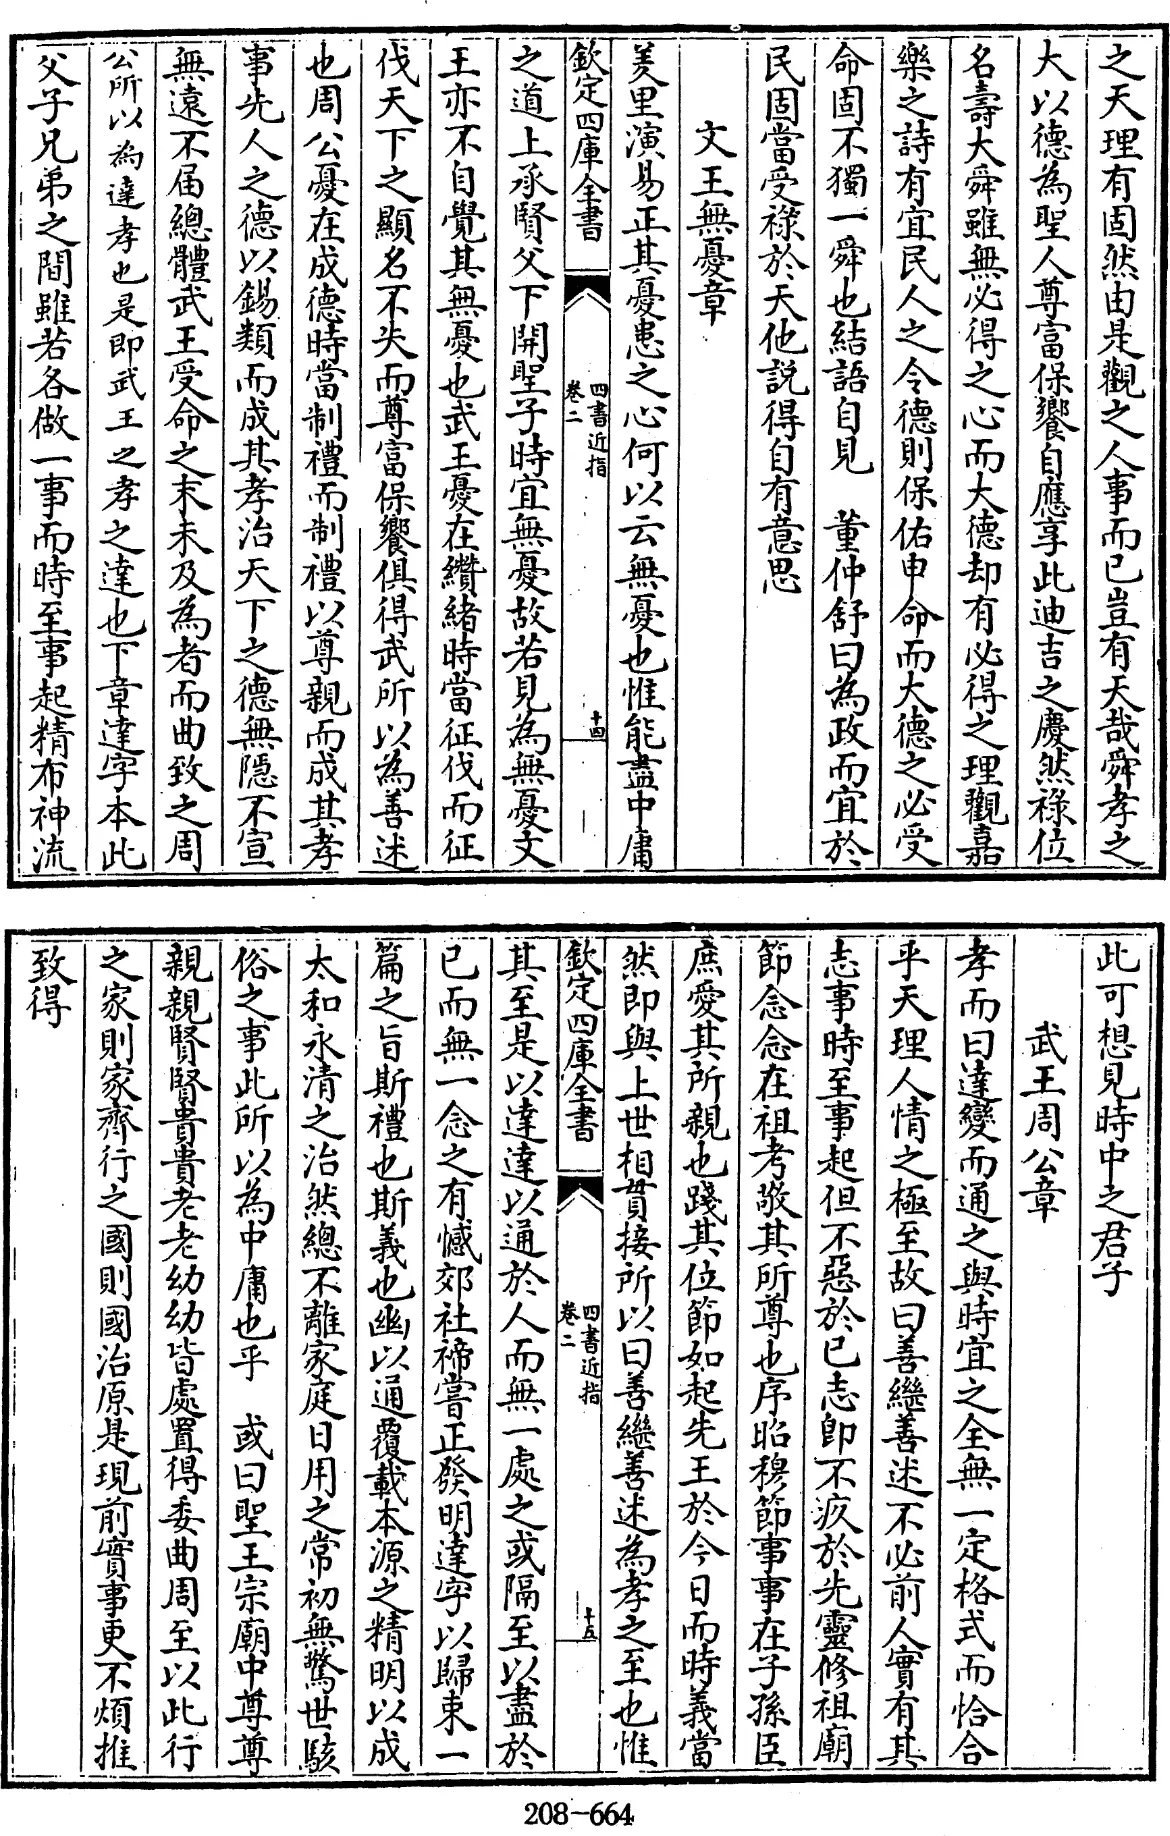 之天理有固然由是觀之人事而已豈有天哉舜孝之
大以德為聖人尊富保饗自應享此迪吉之慶然祿位
名壽大舜雖無必得之心而大德却有必得之理觀嘉
樂之詩有宜民人之令德則保佑申命而大德之必受
命固不獨一舜也結語自見　董仲舒曰為政而宜於
民固當受祿於天他說得自有意思
文王無憂章
羑里演易正其憂患之心何以云無憂也惟能盡中庸
欽定四庫全書
四書近指
卷二
十四
之道上承賢父下開聖子時宜無憂故若見為無憂文
王亦不自覺其無憂也武王憂在纘緒時當征伐而征
伐天下之顯名不失而尊富保饗俱得武所以為善述
也周公憂在成德時當制禮而制禮以尊親而成其孝
事先人之德以錫類而成其孝治天下之德無隱不宣
無遠不届總體武王受命之末未及為者而曲致之周
公所以為達孝也是即武王之孝之達也下章達字本此
父子兄弟之間雖若各做一事而時至事起精布神流
此可想見時中之君子
武王周公章
孝而曰達變而通之與時宜之全無一定格式而恰合
乎天理人情之極至故曰善繼善述不必前人實有其
志事時至事起但不惡於已志卽不疚於先靈修祖廟
節念念在祖考敬其所尊也序昭穆節事事在子孫臣
庶愛其所親也踐其位節如起先王於今日而時義當
然即與上世相貫接所以曰善繼善述為孝之至也惟
欽定四庫全書
四書近指
卷二
十五
其至是以達達以通於人而無一處之或隔至以盡於
已而無一念之有憾郊社禘嘗正發明達字以歸束一
篇之旨斯禮也斯義也幽以通覆載本源之精明以成
太和永清之治然總不離家庭日用之常初無驚世駭
俗之事此所以為中庸也乎　或曰聖王宗廟中尊尊
親親賢賢貴貴老老幼幼皆處置得委曲周至以此行
之家則家齊行之國則國治原是現前實事更不煩推
致得
208-664